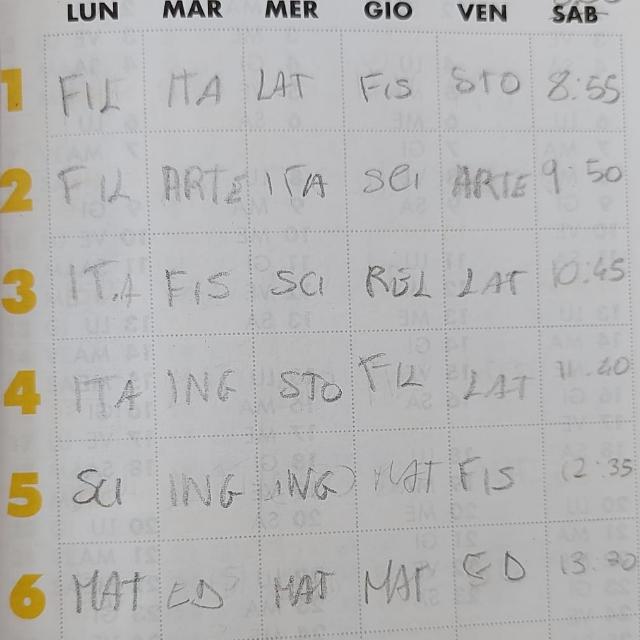 LUN MAR MER GIO VEN SAB
1 FIL ITA LAT FIS STO 8:55
2 FIL ARTE ITA SCI ARTE 9 50
3 ITA FIS SCI REL LAT 10.45
4 ITA ING STO FIL LAT 11.40
5 SCI ING ING MAT FIS 12.35
6 MAT ED MAT MAT ED